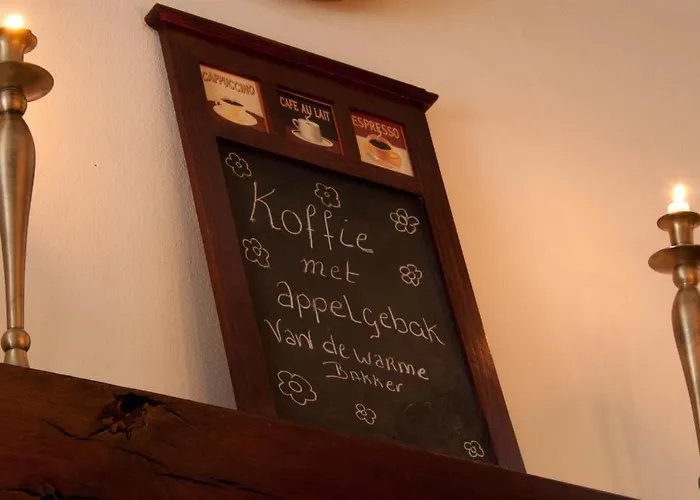 CAPPUCCINO
CAFE AU LAIT
ESPRESSO
Koffie
met
appelgebak
Van de warme
Bakker